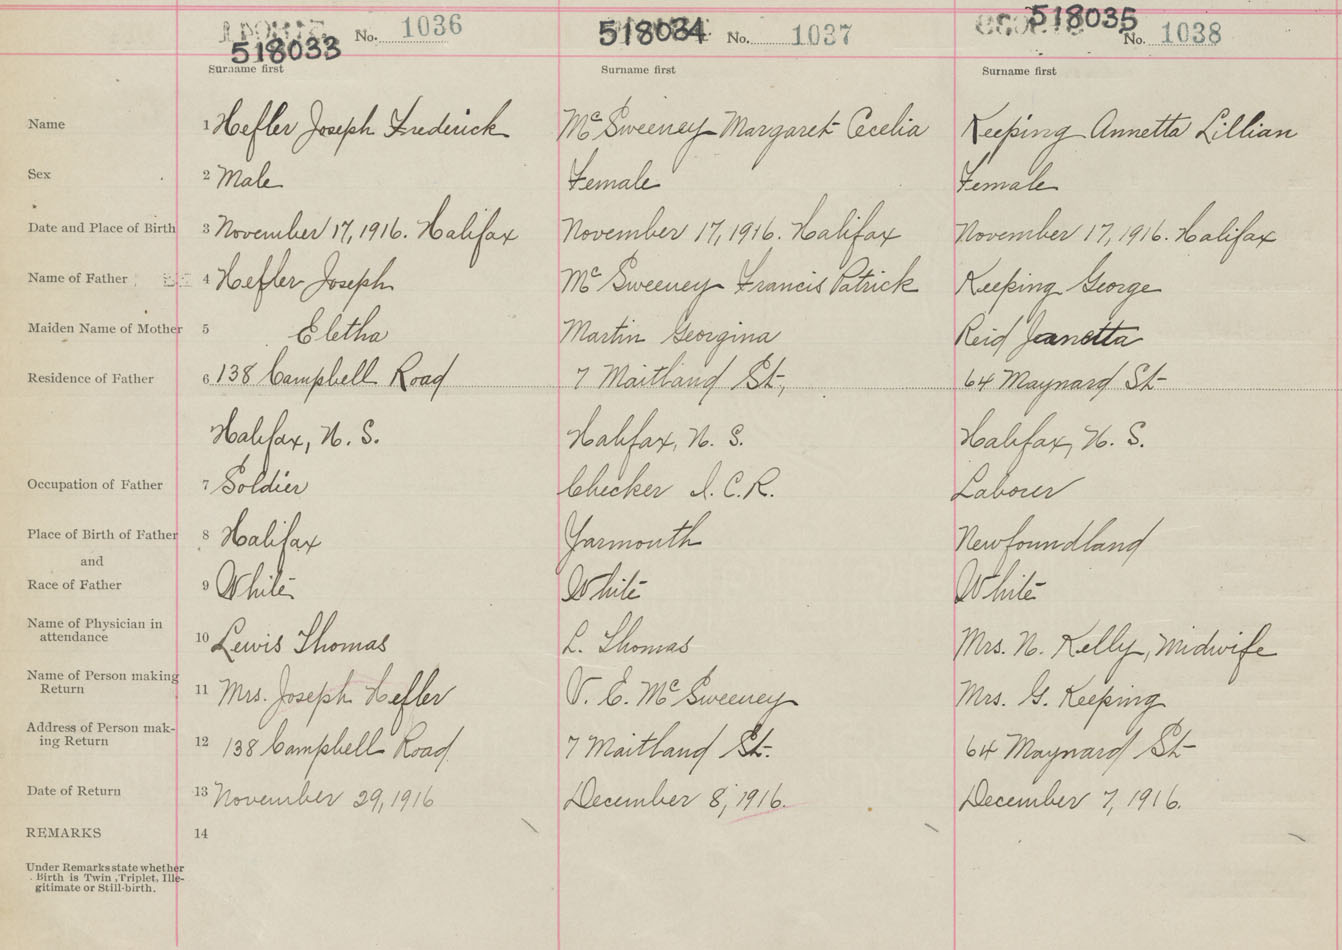 518033 No. 1036 518034 No. 1037 518035 No. 1038
Surname first Surname first Surname first
Name 1 Hefler Joseph Frederick McSweeney Margaret Cecelia Keeping Annetta Lillian
Sex 2 Male Female Female
Date and Place of Birth 3 November 17, 1916. Halifax November 17, 1916. Halifax November 17, 1916. Halifax
Name of Father 4 Hefler Joseph McSweeney Francis Patrick Keeping George
Maiden Name of Mother 5 Eletha Martin Georgina Reid Janetta
Residence of Father 6 138 Campbell Road 7 Maitland St., 64 Maynard St
Halifax, N. S. Halifax, N. S. Halifax, N. S.
Occupation of Father 7 Soldier Checker I.C.R. Laborer
Place of Birth of Father 8 Halifax Yarmouth Newfoundland
and
Race of Father 9 White White White
Name of Physician in
attendance 10 Lewis Thomas L. Thomas Mrs. N. Kelly, Midwife
Name of Person making
Return 11 Mrs. Joseph Hefler V. E. McSweeney Mrs. G. Keeping
Address of Person mak-
ing Return 12 138 Campbell Road 7 Maitland St. 64 Maynard St
Date of Return 13 November 29, 1916 December 8, 1916. December 7, 1916.
REMARKS 14
Under Remarks state whether
Birth is Twin, Triplet, Ille-
gitimate or Still-birth.